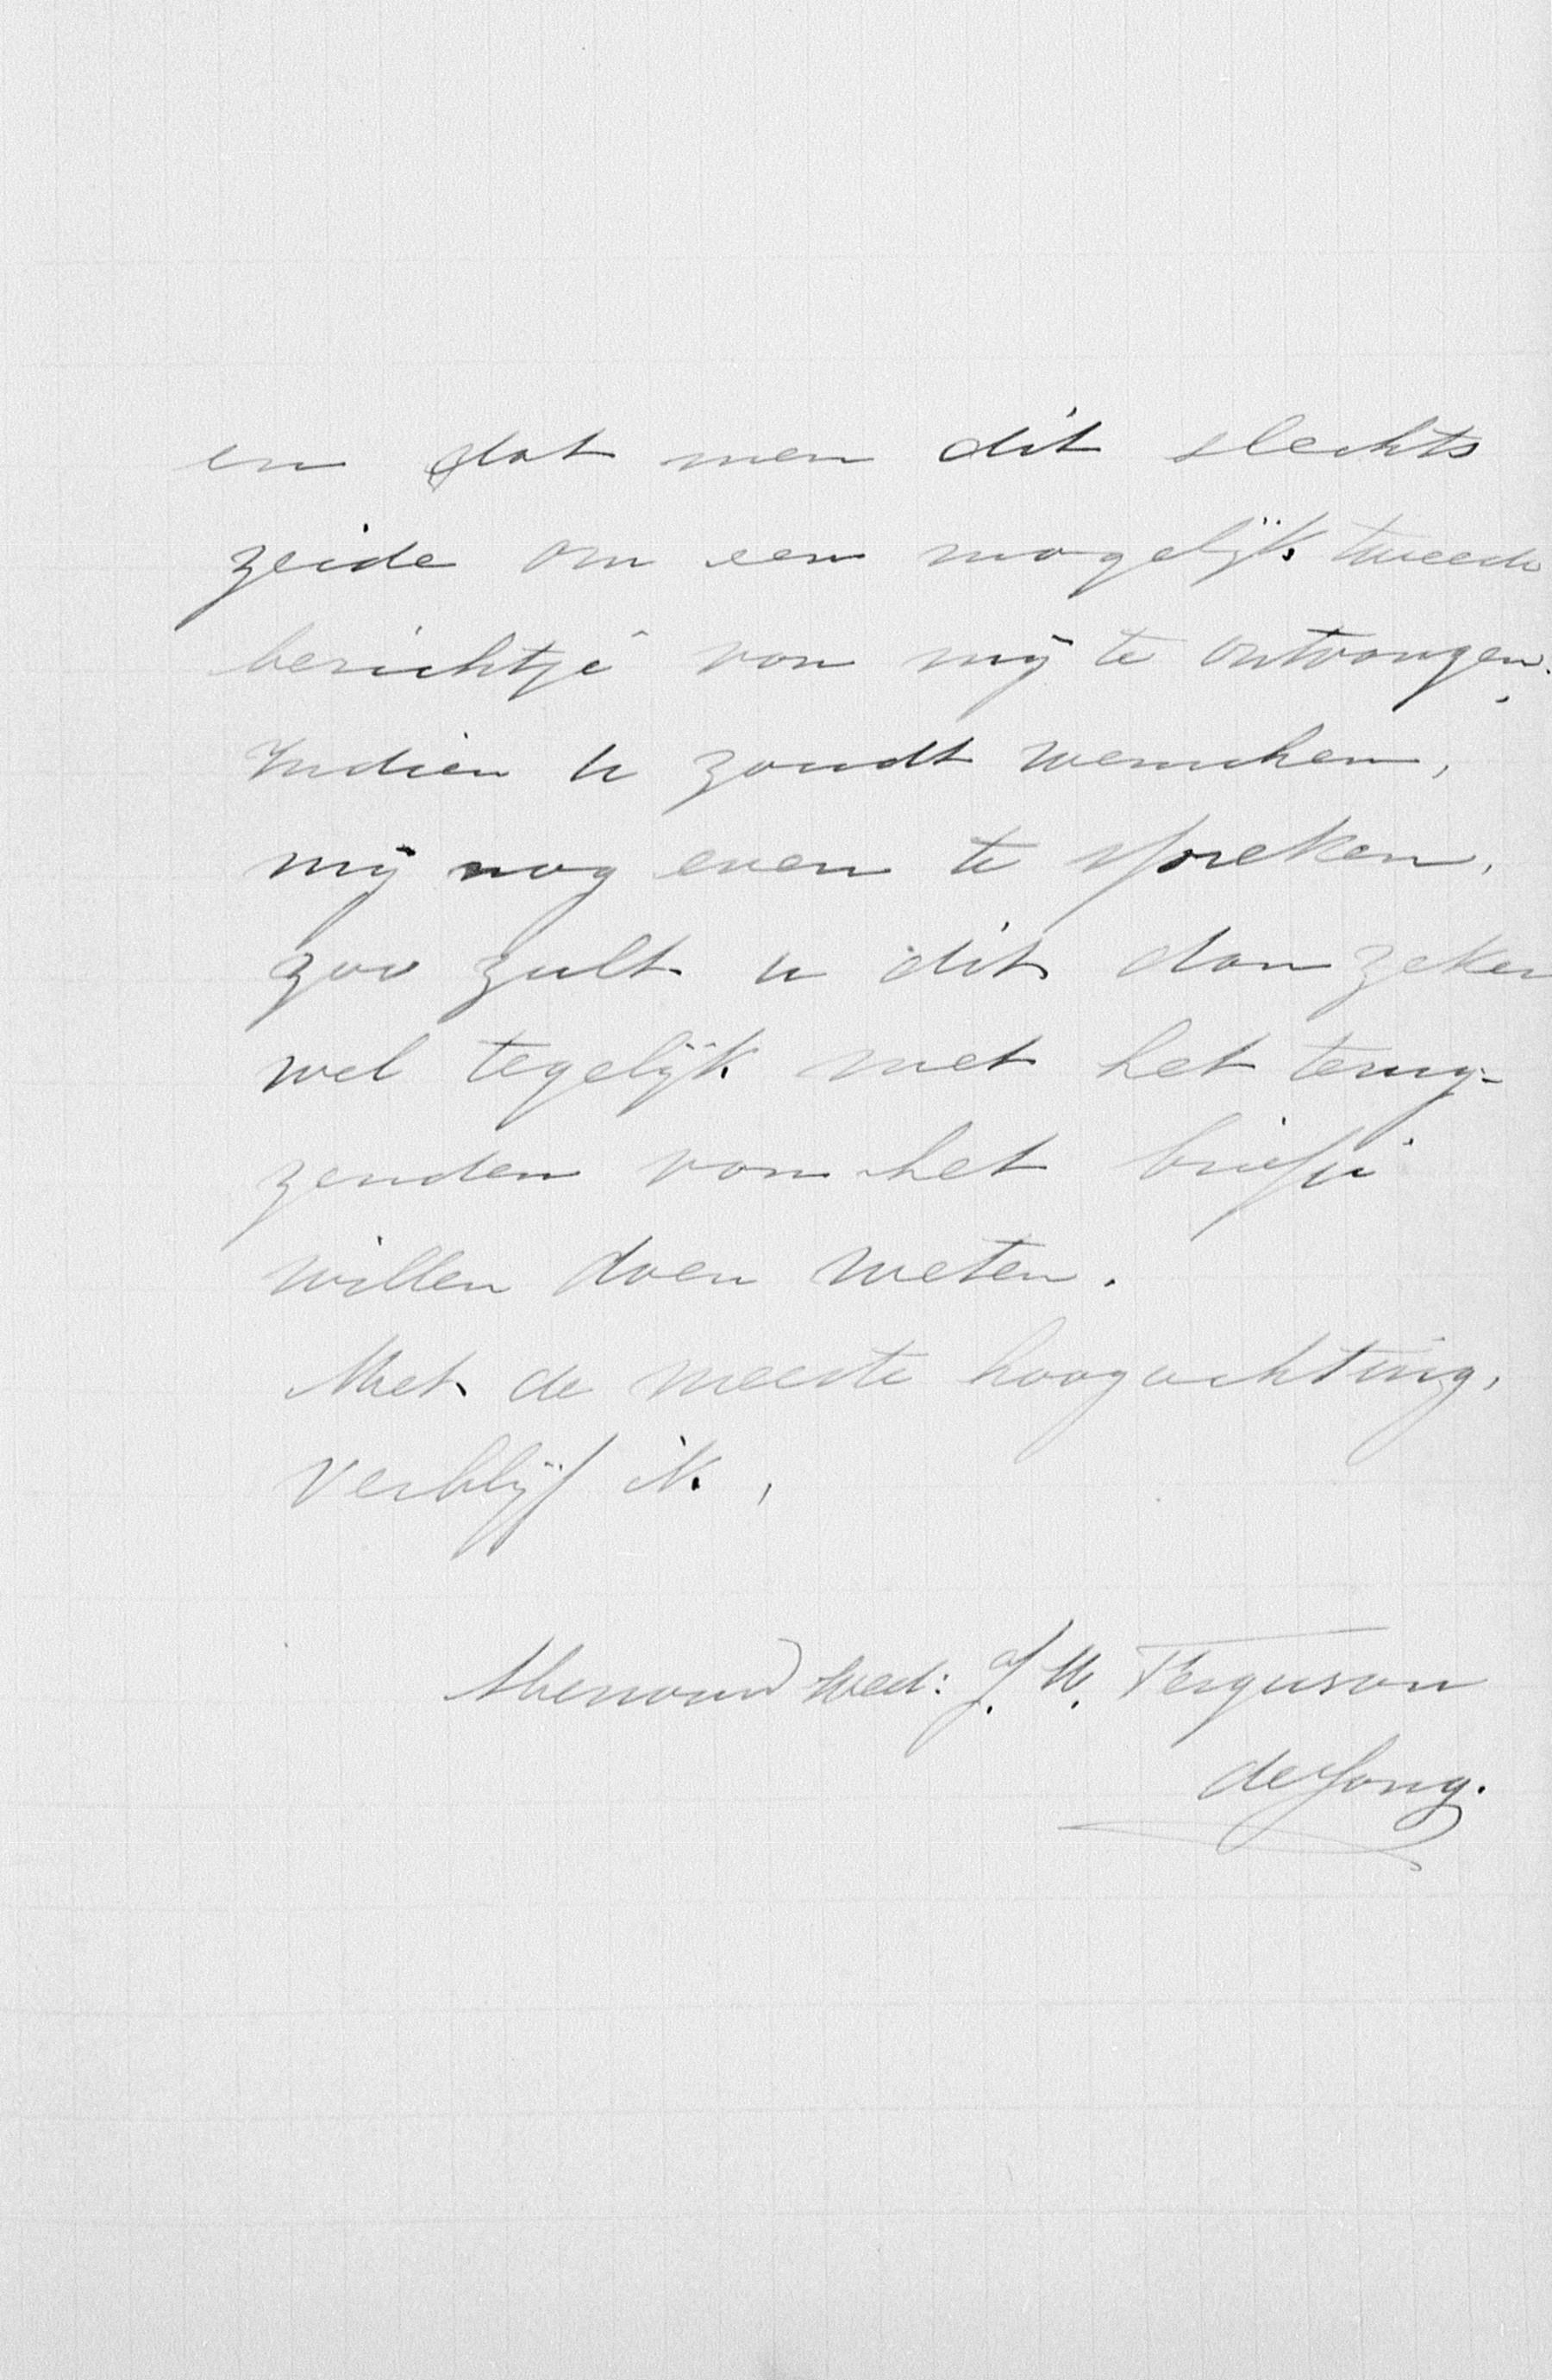 en dat men dit slechts
zeide om een mogelijk tweede
berichtje van mij te ontvangen.
Indien u zoudt wenschen,
mij nog even te spreken,
zoo zult u dit dan zeker
wel tegelijk met het terug-
zenden van het briefje
willen doen weten.
Met de meeste hoogachting,
verblijf ik,
Mevrouw Wed: J. W. Ferguson
de Jong.